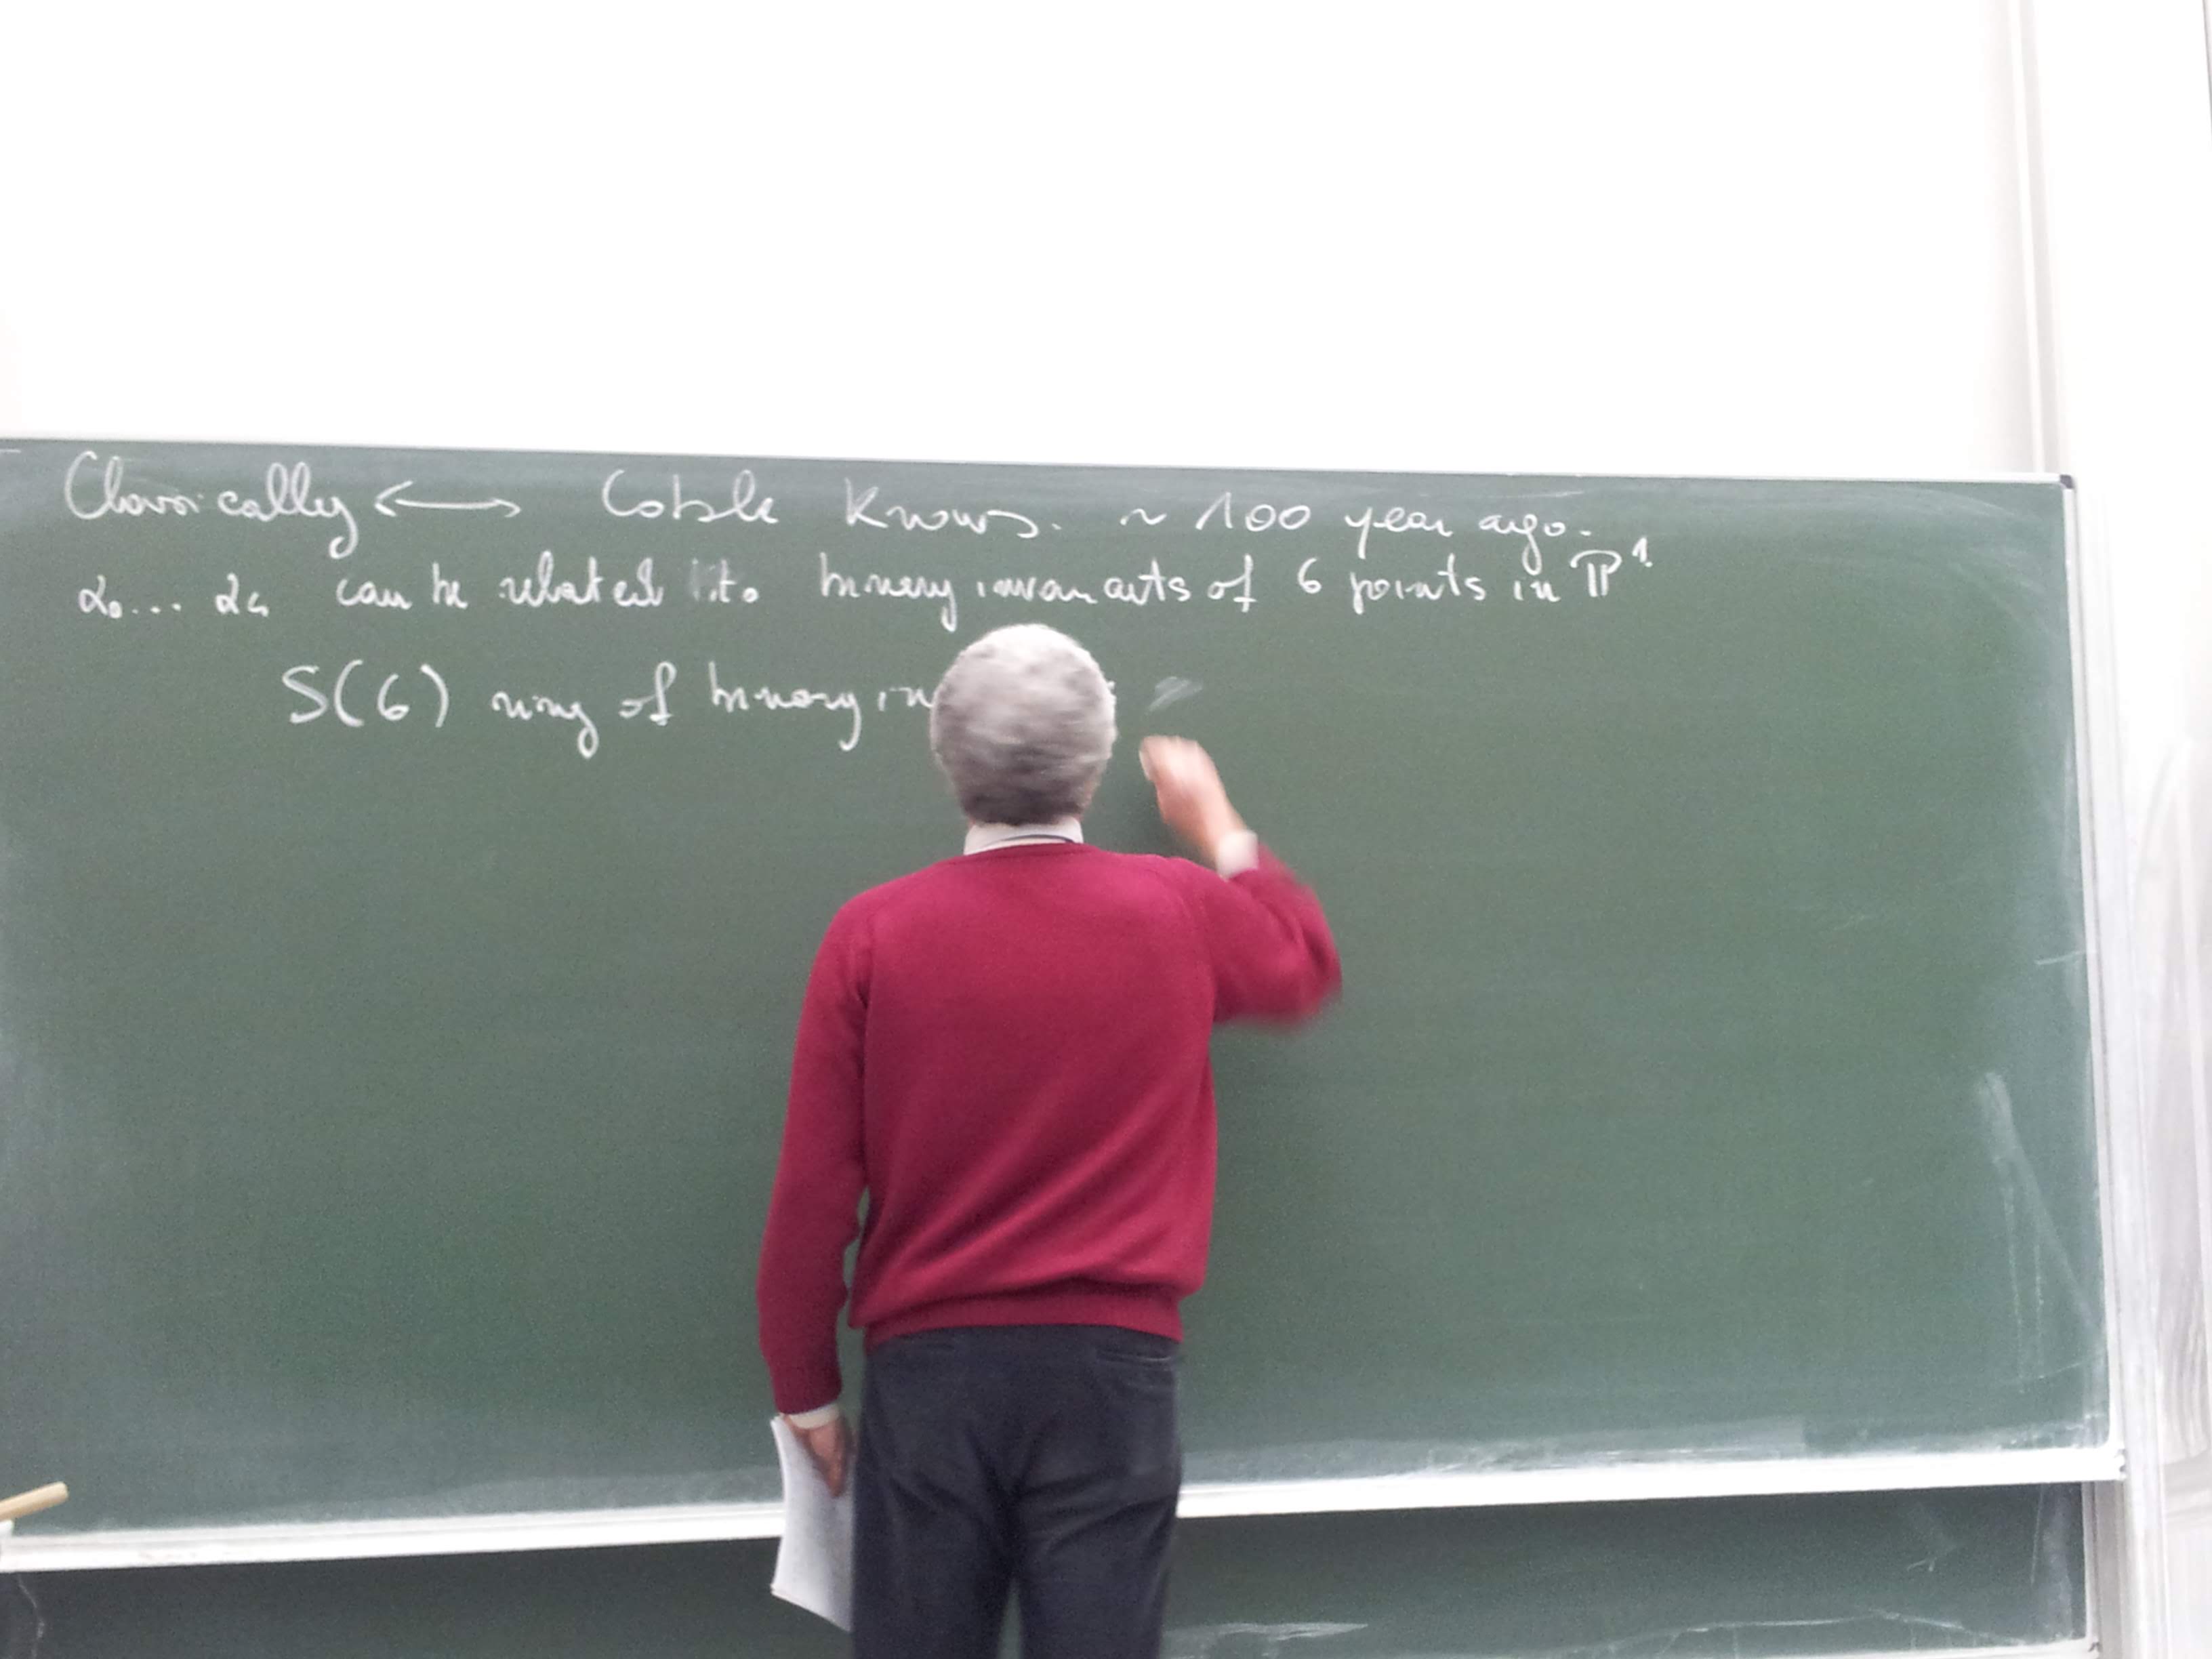 Classically ⟷ Coble knows. ~ 100 year ago.
α₀... α₄ can be related to binary invariants of 6 points in ℙ¹.
S(6) ring of binary in